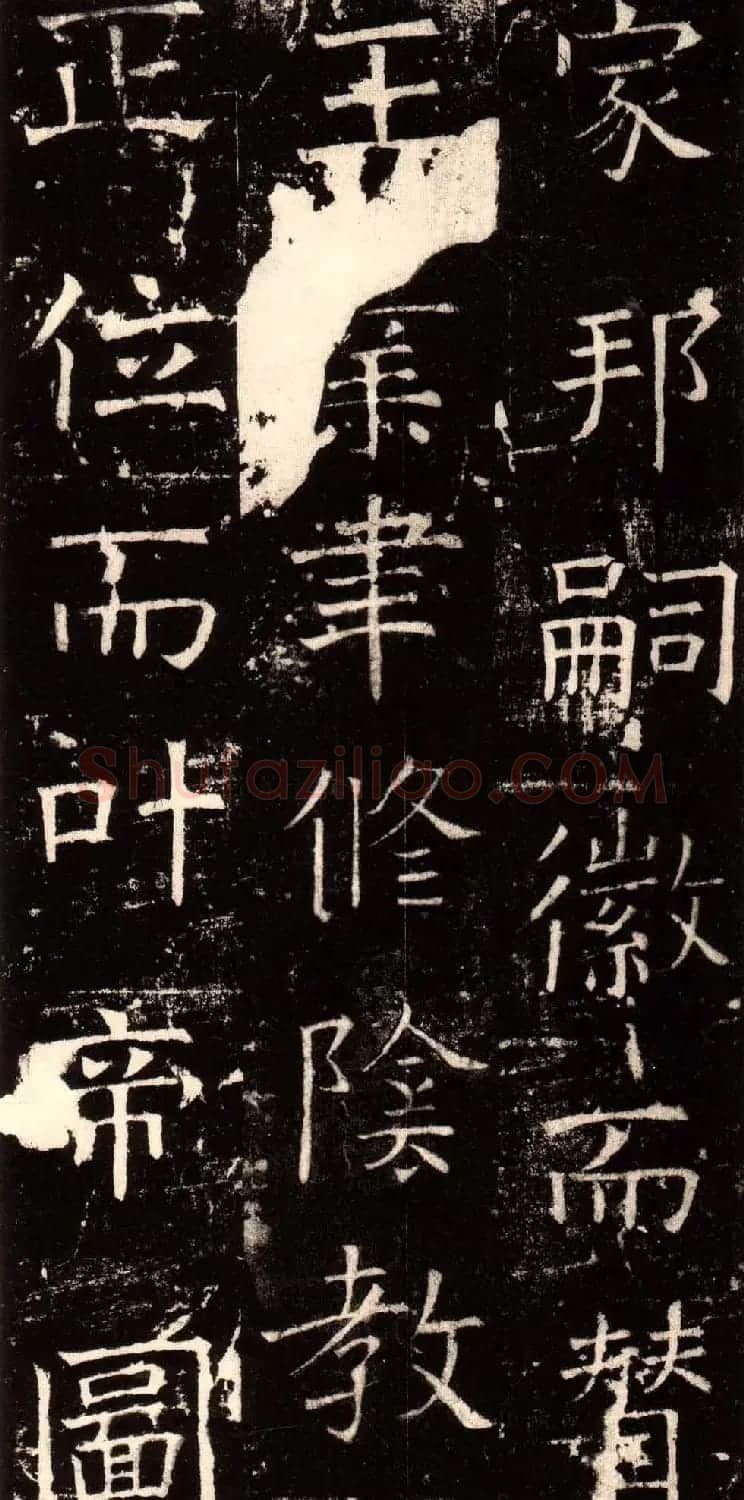 家邦嗣徽而賛
王業聿修陰教
正位而叶帝圖
Shufaziliao.COM